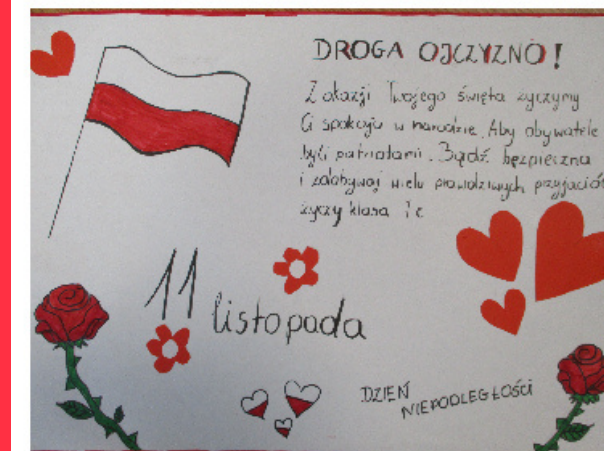 DROGA OJCZYZNO!
Z okazji Twojego święta życzymy
Ci spokoju w narodzie. Aby obywatele
byli patriotami. Bądź bezpieczna
i zdobywaj wielu prawdziwych przyjaciół
życzy klasa 1c
11
listopada
DZIEŃ
NIEPODLEGŁOŚCI